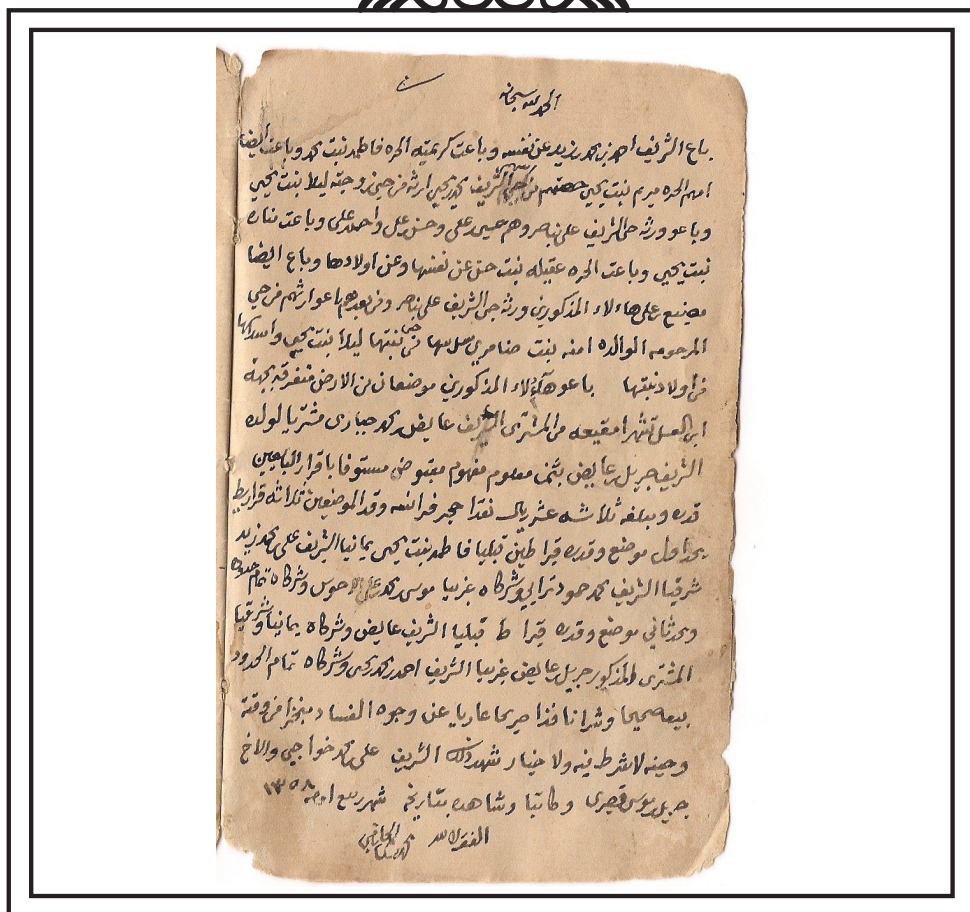 الحمد لله سبحانه
باع الشريف احمد بن محمد بن زيد عن نفسه وباعت كريمته الحره فاطمه بنت محمد وباعت ايضا
امهم الحره مريم بنت يحيى حصتهم من الشريف محمد يحيى ارثه من حي زوجته ليلا بنت يحيى
وباعو ورثة حي الشريف علي ناصر وهم عيسى علي وحسن علي واحمد علي وباعت
بنت يحيى وباعت الحره عقيله بنت حسن عن نفسها وعن اولادها وباع ايضا
علي هاءلاء المذكورين ورثة حي الشريف علي ناصر ومن بعدهم باعو ارثهم من حي
المرحومه الوالده امنه بنت من حي بنتها ليلا بنت يحيى
من اولاد بنتها باعو هآؤلاء المذكورين موضعان من الارض متفرقه بجهة
ابن العسل تشهرا من المشترى الشريف عايض محمد جبارى مشتريا لولده
الشريف جبريل عايض بثمن معلوم مفهوم مقبوض مستوفا باقرار البايعين
قدره ومبلغه ثلاثه عشر ريال نقدا حجر فرانسه وقد الموضعين ثلاثه قراريط
يحد اول موضع وقدره قيراطين قبليا فاطمه بنت يحيى يمانيا الشريف علي محمد زيد
شرقيا الشريف محمد حمود ترابي وشركاه غربيا موسى محمد علي الاحوس وشركاه تمام حدوده
ويحد ثاني موضع وقدره قيراط قبليا الشريف عايض وشركاه يمانيا وشرقيا
المشترى المذكور جبريل عايض غربيا الشريف احمد محمد يحيى وشركاه تمام الحدود
بيعا صحيحا وشرا نافذا صريحا عاريا عن وجوه الفساد منجزا من وقته
وحينه لا شرط فيه ولا خيار شهد ذلك الشريف علي محمد خواجي والاخ
جبريل موسى قصيرى وكاتبا وشاهده بتاريخه شهر ربيع اول ١٣٥٨
الفقير لله